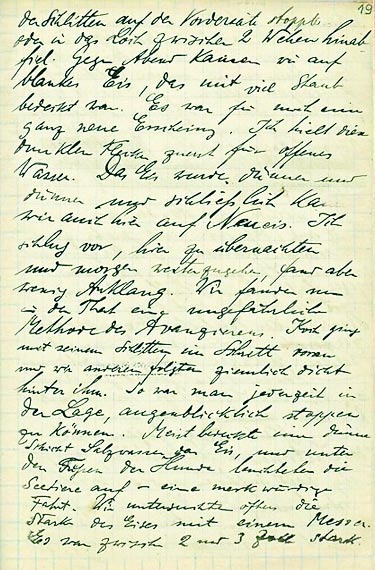 19
der Schlitten auf der Vorderseite stoppte
oder in das Loch zwischen 2 Wehen hinab-
fiel. Gegen Abend kamen wir auf
blankes Eis, das mit viel Staub
bedeckt war. Es war für mich eine
ganz neue Erscheinung. Ich hielt diese
dunklen Flecken zuerst für offenes
Wasser. Das Eis wurde dünner und
dünner und schließlich kamen
wir auch hier auf Neueis. Ich
schlug vor, hier zu übernachten
und morgen weiterzugehen, fand aber
wenig Anklang. Wir fanden nun
in der That eine ungefährliche
Methode des Avancierens. Koch ging
mit seinem Schlitten im Schritt voran
und wir anderen folgten ziemlich dicht
hinter ihm. So war man jederzeit in
der Lage, augenblicklich stoppen
zu können. Meist bedeckte eine dünne
Schicht Salzwasser das Eis, und unter
den Füßen der Hunde leuchteten die
Seetiere auf – eine merkwürdige
Fahrt. Wir untersuchten öfters die
Stärke des Eises mit einem Messer.
Es war zwischen 2 und 3 Zoll stark.